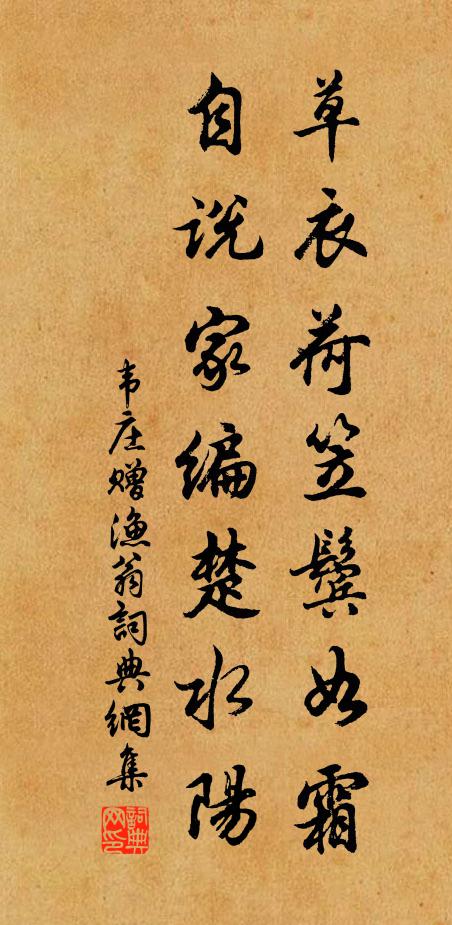 草衣荷笠鬓如霜
自说家编楚水陽
韦庄赠漁翁詞典網集
詞典网印